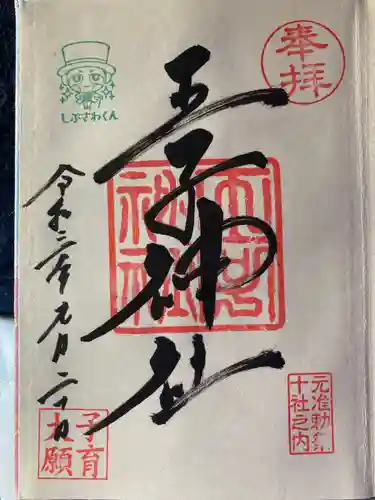 奉拝
王子神社
王子神社
元准勅祭
十社之内
しぶさわくん
令和三年九月二十日
子育
大願